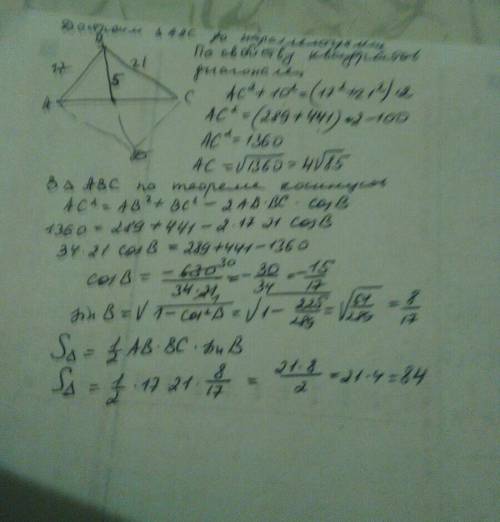 Достроим Δ ABC до параллелограмма
B
17
21
5
A
C
По свойству квадратов
диагоналей
AC² + 10² = (17² + 21²)·2
AC² = (289 + 441)·2 - 100
AC² = 1360
AC = √1360 = 4√85
В Δ ABC по теореме косинусов
AC² = AB² + BC² - 2AB·BC · cosB
1360 = 289 + 441 - 2·17·21 cosB
34·21 cosB = 289 + 441 - 1360
cosB = -630 30 / 34·21 = -30/34 = -15/17
sinB = √1-cos²B = √1 - 225/289 = √64/289 = 8/17
S_Δ = 1/2 AB·BC·sinB
S_Δ = 1/2 · 17·21 · 8/17 = 21·8/2 = 21·4 = 84